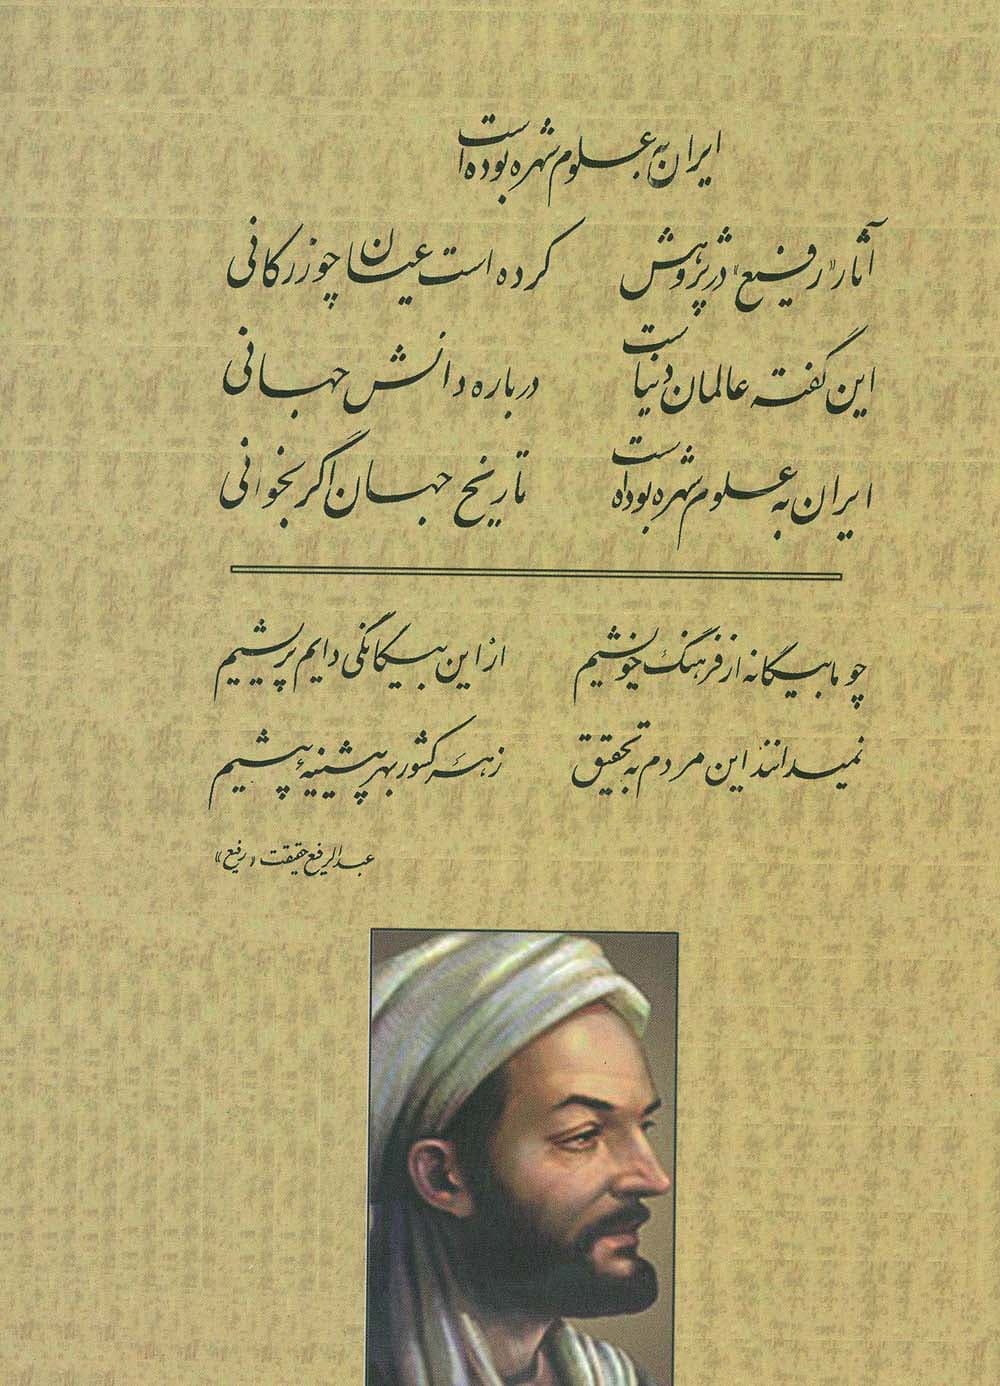 ایران به علوم شهره بوده است
آثار «رفیع» در پژوهش کرده است عیان چو زر کانی
این گفته عالمان دنیاست درباره دانش جهانی
ایران به علوم شهره بوده است تاریخ جهان اگر بخوانی
چو ما بیگانه از فرهنگ خویشیم از این بیگانگی دایم پریشیم
نمیدانند این مردم به تحقیق ز هر کشور بهر پیشینه پیشیم
عبدالرفیع حقیقت «رفیع»